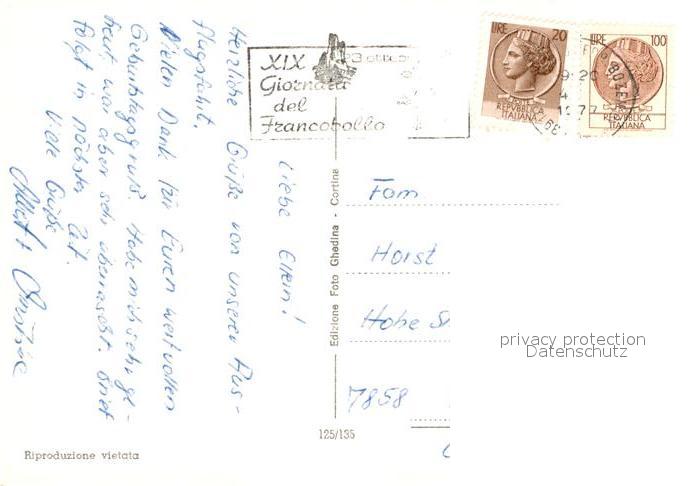 XIX
Giornata
del
Francobollo
3 ottob
LIRE 20
REPVBBLICA
ITALIANA
LIRE 100
REPVBBLICA
ITALIANA
9-20
1977
Liebe Eltern!
Herzliche Grüße von unserer Aus-
flugsfahrt.
Vielen Dank für Euren wertvollen
Geburtstagsgruß. Habe mich sehr ge-
freut, war aber sehr überrascht. Brief
folgt in nächster Zeit.
Viele Grüße
Edizione Foto Ghedina - Cortina
Fam
Horst
Hohe St
7858
privacy protection
Datenschutz
125/135
Riproduzione vietata